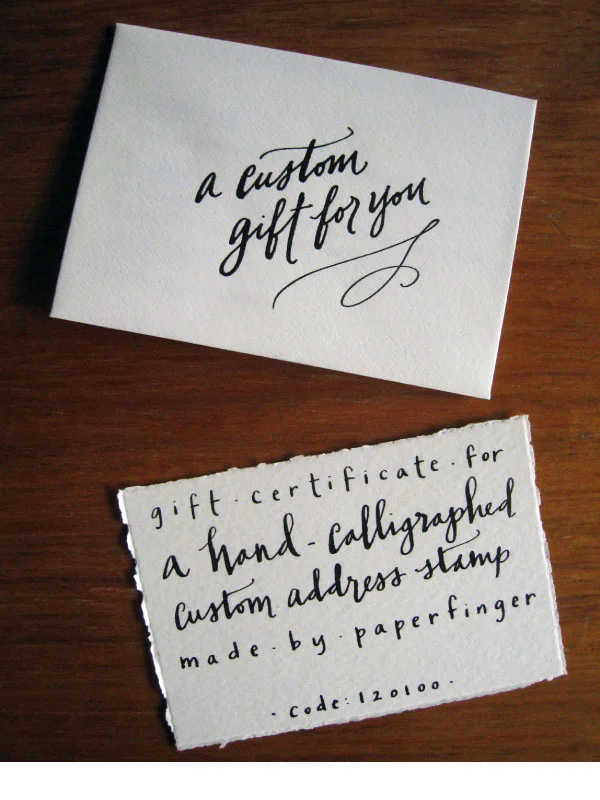 a custom
gift for you
gift · certificate · for
a hand-calligraphed
custom address stamp
made · by · paperfinger
· code: 120100 ·